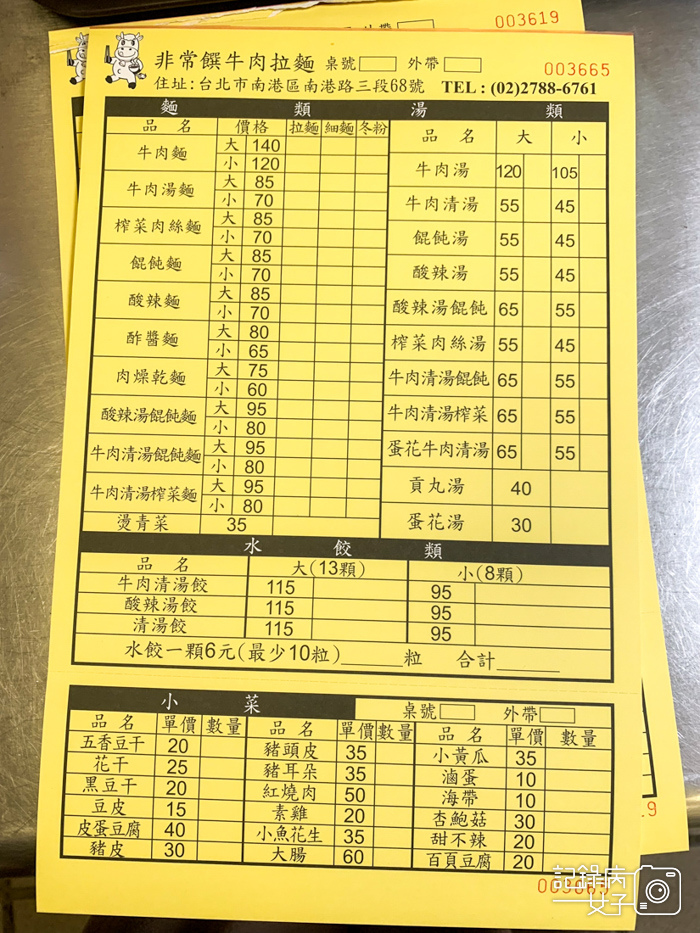 003619
外帶
003665
非常饌牛肉拉麵 桌號 外帶
住址:台北市南港區南港路三段68號 TEL : (02)2788-6761
麵 類
品 名 價格 拉麵 細麵 冬粉
牛肉麵 大 140
小 120
牛肉湯麵 大 85
小 70
榨菜肉絲麵 大 85
小 70
餛飩麵 大 85
小 70
酸辣麵 大 85
小 70
酢醬麵 大 80
小 65
肉燥乾麵 大 75
小 60
酸辣湯餛飩麵 大 95
小 80
牛肉清湯餛飩麵 大 95
小 80
牛肉清湯榨菜麵 大 95
小 80
燙青菜 35
湯 類
品 名 大 小
牛肉湯 120 105
牛肉清湯 55 45
餛飩湯 55 45
酸辣湯 55 45
酸辣湯餛飩 65 55
榨菜肉絲湯 55 45
牛肉清湯餛飩 65 55
牛肉清湯榨菜 65 55
蛋花牛肉清湯 65 55
貢丸湯 40
蛋花湯 30
水 餃 類
品 名 大(13顆) 小(8顆)
牛肉清湯餃 115 95
酸辣湯餃 115 95
清湯餃 115 95
水餃一顆6元(最少10粒)______粒 合計______
小 菜 桌號 外帶
品 名 單價 數量 品 名 單價 數量 品 名 單價 數量
五香豆干 20 豬頭皮 35 小黃瓜 35
花干 25 豬耳朵 35 滷蛋 10
黑豆干 20 紅燒肉 50 海帶 10
豆皮 15 素雞 20 杏鮑菇 30
皮蛋豆腐 40 小魚花生 35 甜不辣 20
豬皮 30 大腸 60 百頁豆腐 20
003665
記錄病
女子